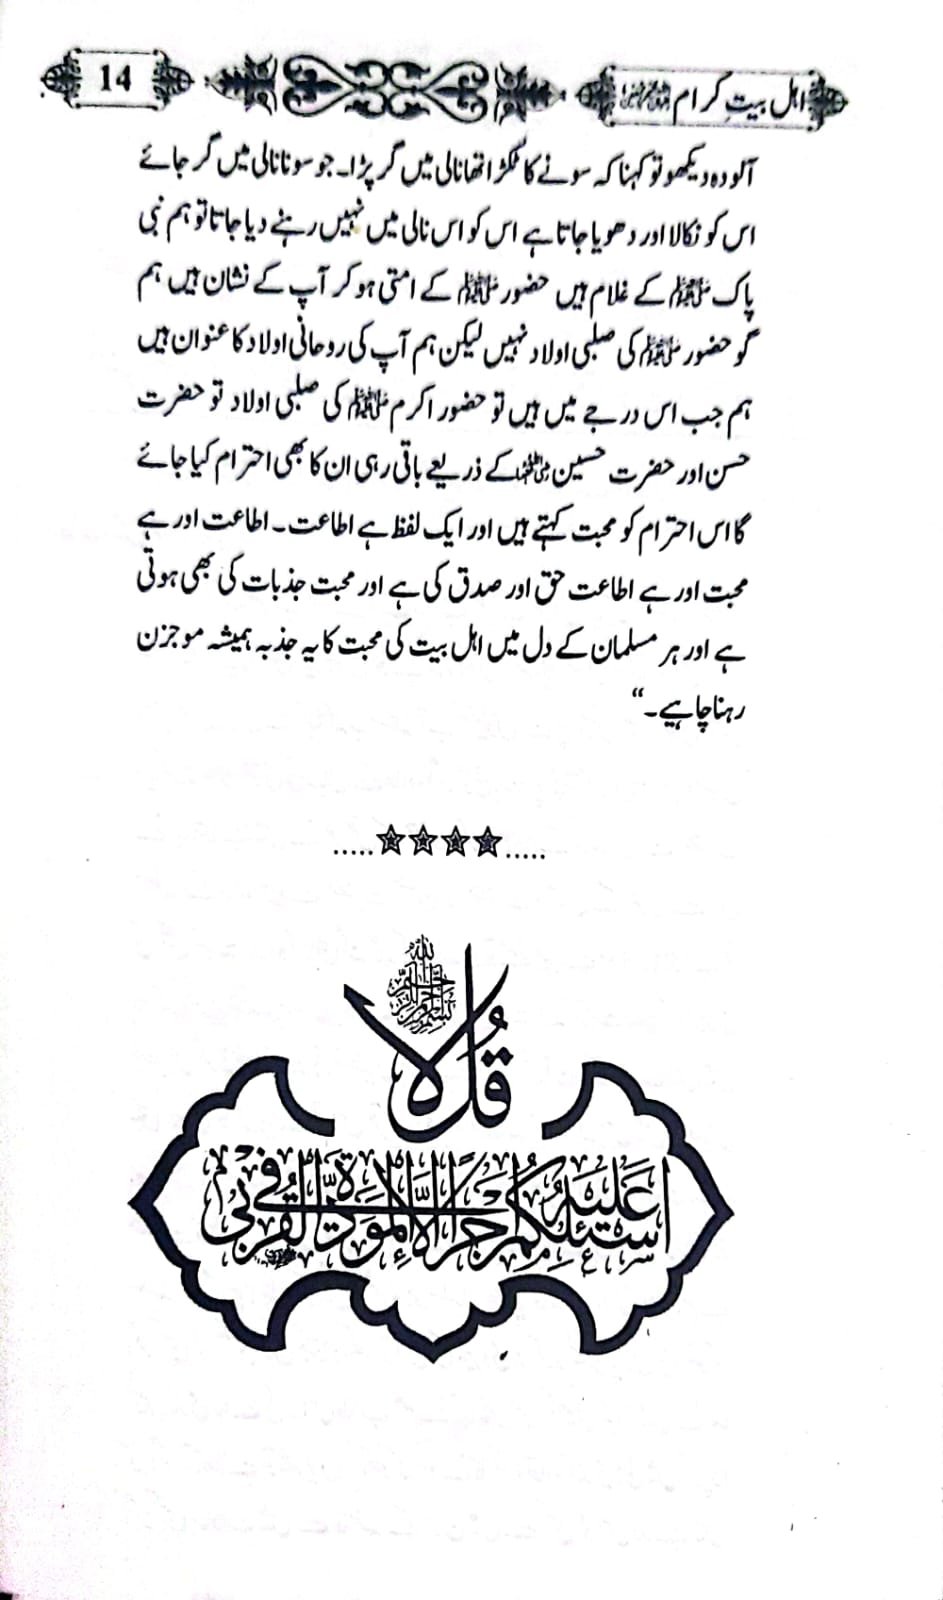 اہل بیتِ کرام رضی اللہ عنہم
14
آلودہ دیکھو تو کہنا کہ سونے کا ٹکڑا تھا نالی میں گر پڑا۔ جو سونا نالی میں گر جائے
اس کو نکالا اور دھویا جاتا ہے اس کو اس نالی میں نہیں رہنے دیا جاتا تو ہم نبی
پاک ﷺ کے غلام ہیں حضور ﷺ کے امتی ہو کر آپ کے نشان ہیں ہم
گو حضور ﷺ کی صلبی اولاد نہیں لیکن ہم آپ کی روحانی اولاد کا عنوان ہیں
ہم جب اس درجے میں ہیں تو حضور اکرم ﷺ کی صلبی اولاد تو حضرت
حسن اور حضرت حسین رضی اللہ عنہما کے ذریعے باقی رہی ان کا بھی احترام کیا جائے
گا اس احترام کو محبت کہتے ہیں اور ایک لفظ ہے اطاعت۔ اطاعت اور ہے
محبت اور ہے اطاعت حق اور صدق کی ہے اور محبت جذبات کی بھی ہوتی
ہے اور ہر مسلمان کے دل میں اہل بیت کی محبت کا یہ جذبہ ہمیشہ موجزن
رہنا چاہیے۔“
.....☆☆☆☆.....
بسم الله الرحمن الرحيم
قُل لَّا
أَسْئَلُكُمْ عَلَيْهِ أَجْرًا إِلَّا الْمَوَدَّةَ فِي الْقُرْبَىٰ